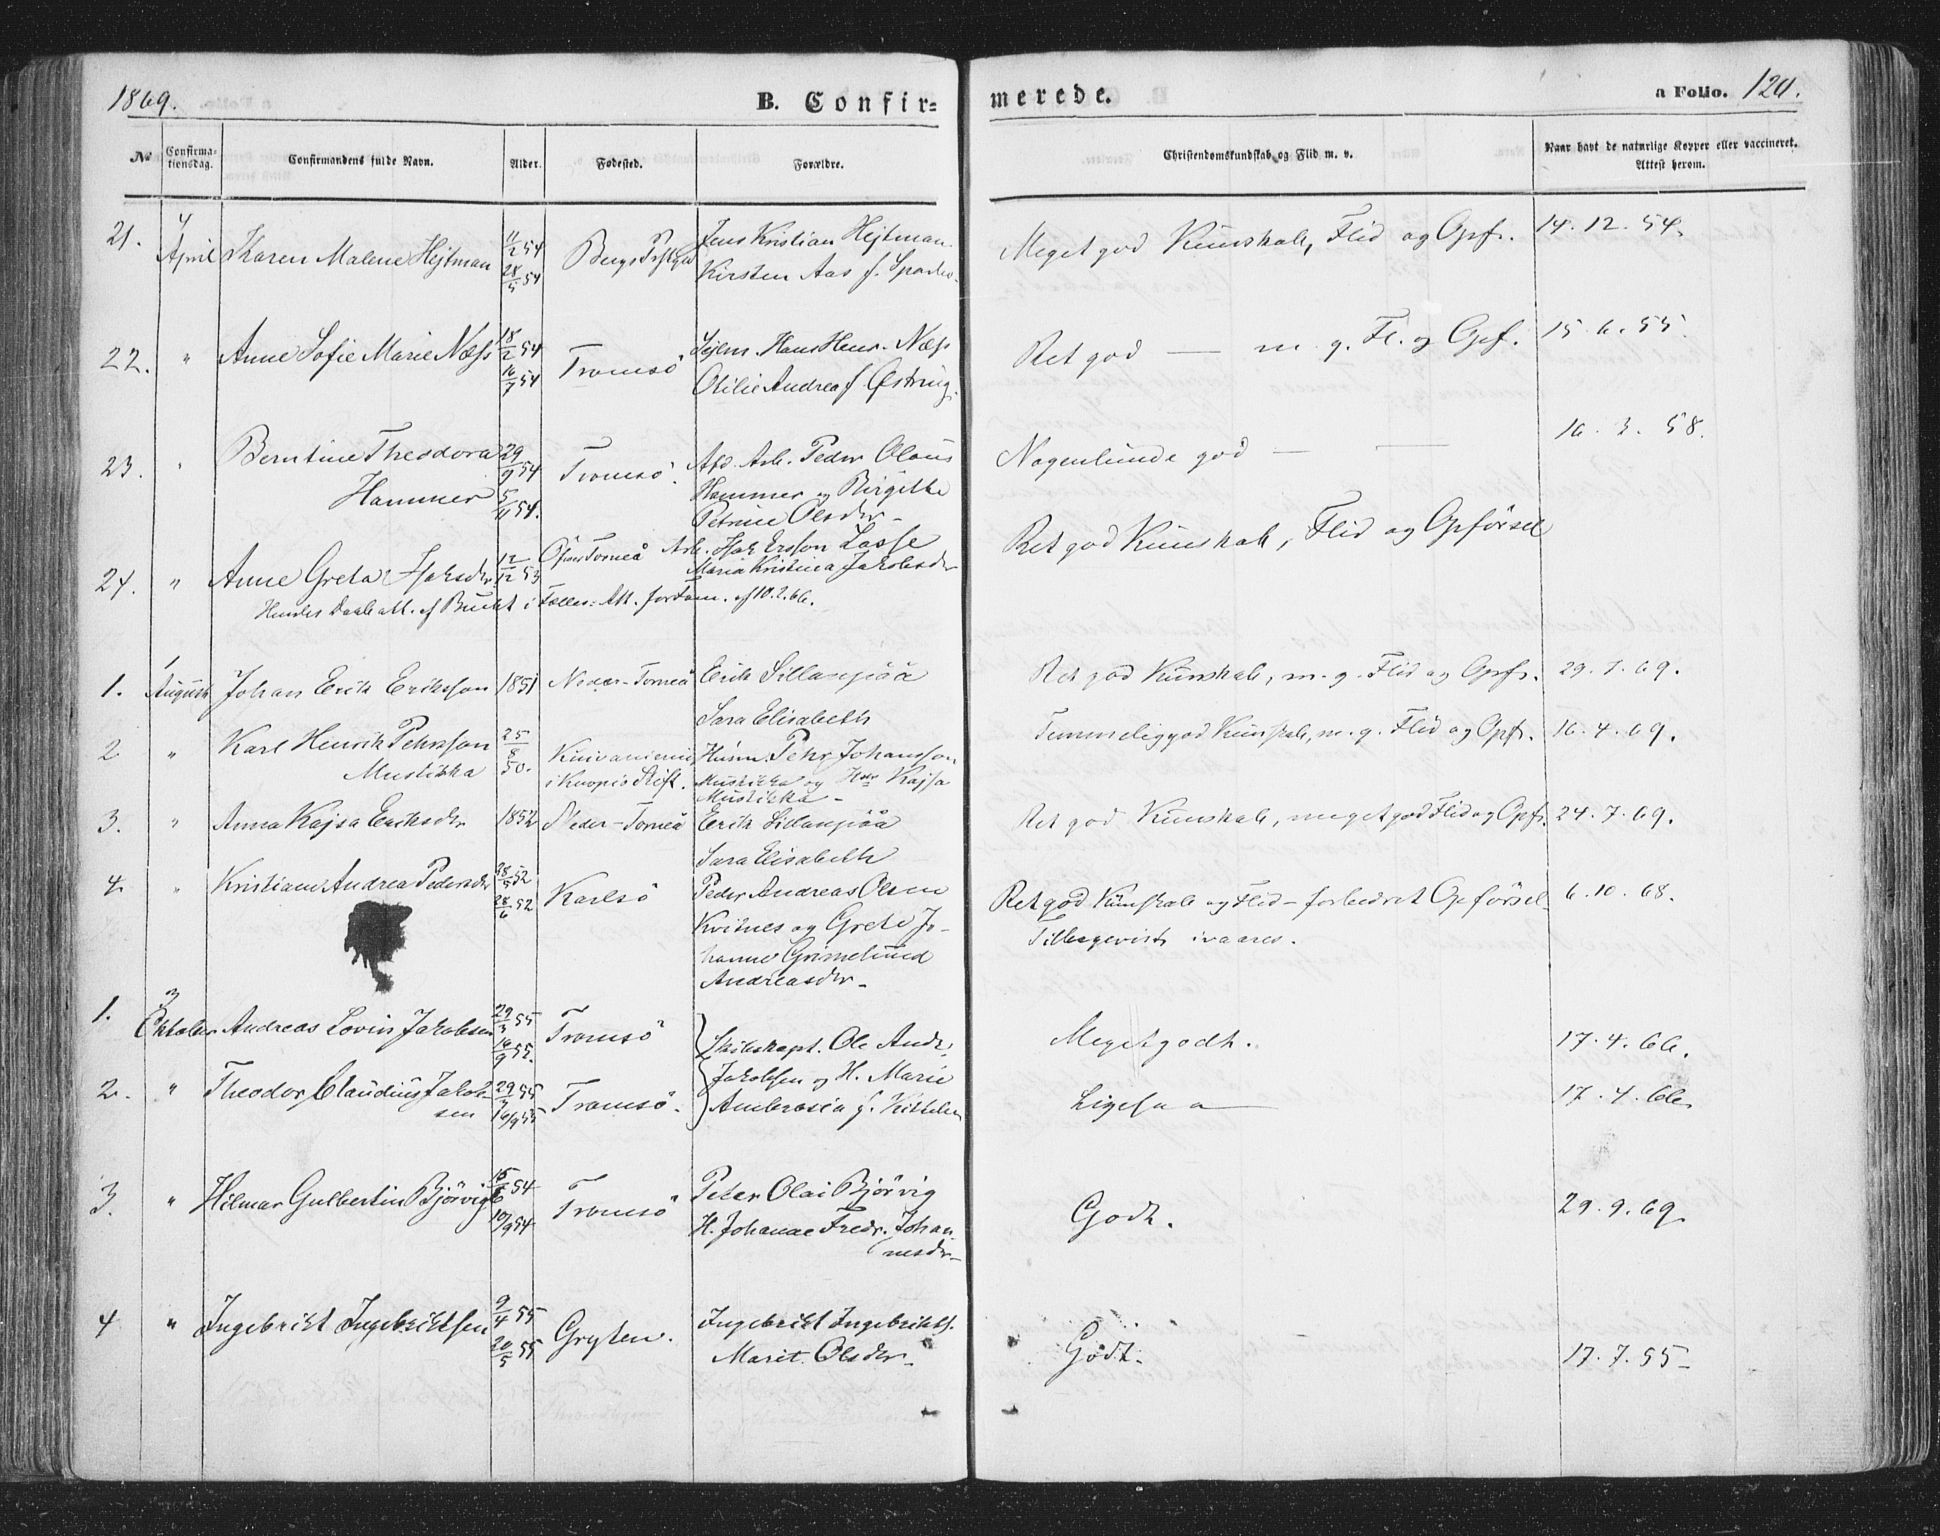 1869.
B. Confir=
merede.
a Folio. 120.
No
Confirmationsdag.
Confirmandens fulde Navn.
Alder.
Fødested.
Forældre.
Christendomskundskab og Flid m. v.
Naar havt de naturlige Kopper eller vaccineret. Attest herom.
21. 4 April Karen Malene Hejtman 11/2 54 28/5 54 Bergs Prstgd Jens Kristian Hejtman Kirsten Aas f. Meget god Kunskab, Flid og Opf. 14.12.54.
22. " Anne Sofie Marie Næss 18/2 54 16/7 54 Tromsö Sejlm. Hans Henr. Næss
Otilie Andrea f. Østring Ret god — m. g. Fl. og Opf. 15.6.55.
23. " Berntine Theodora Hammer 29/9 54 5/11 54. Tromsö. Arb. Peder Olaus
Hammer og Birgitte
Petrine Olsdr. Nogenlunde god — — 16.3.58.
24. " Anne Greta Isaksdr. 12/12 53 Öfver Torneå Arb. Isak Ersson Lasse
Maria Kristina Jakobsdr Ret god Kunskab, Flid og Opförsel
Hendes Daabsatt. af
1. 1 August Johan Erik Eriksson 1851 Neder-Torneå Erik Sillanpää
Sara Elisabeth Ret god Kunskab, m. g. Flid og Opf. 29.7.69.
2 " Karl Henrik Pehrsson
Mustikka 25/8 50. Kuivaniemi
i Kuopio Stift. Husm. Pehr Johansson
Mustikka og Hu Kajsa
Mustikka Temmelig god Kunskab, m. g. Flid og Opf. 16.4.69.
3. " Anna Kajsa Eriksdr 1852 Neder-Torneå Erik Sillanpää
Sara Elisabeth Ret god Kunskab, meget god Flid og Opf. 24.7.69.
4. " Kristiane Andrea Pedersdr 28/5 52 28/6 52 Karlsö Peder Andreas Olsen
Kvitnes og Grete Jo-
hanne Grimelund
Andreasdr. Ret god Kunskab og Flid – forbedret Opförsel 6.10.68.
1. 3 Oktober Andreas Lovin Jakobsen 29/3 55 16/9 55. Tromsö Skibskapt. Ole Andr.
Jakobsen og H. Marie
Ambrosia f. Kittelsen Meget godt. 17.4.66.
2. " Theodor Claudius Jakob-
sen 29/3 55 16/9 55 Tromsö. Ligesaa — 17.4.66.
3. " Hilmar Gulbertin Björvig 15/6 54 10/9 54 Tromsö Peter Olai Björvig
H. Johanne Fredr. Johan-
nesdr. Godt. 29.9.69.
4 " Ingebrikt Ingebriktsen 9/4 55 20/5 55 Gryten. Ingebrikt Ingebrikts.
Marit Olsdr. Godt. 17.7.55